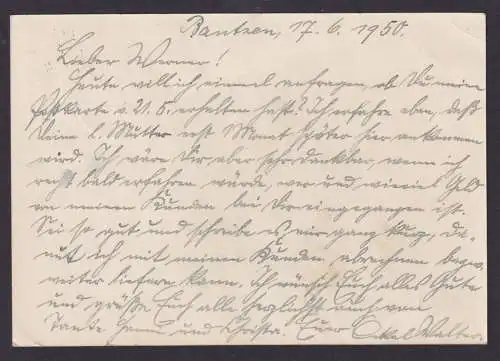 Bautzen, 17. 6. 1950.
Lieber Werner!
Heute will ich einmal anfragen, ob Du meine
Postkarte v. 21. 5. erhalten hast? Ich erfahre eben, daß
Deine l. Mutter erst Monat später hier ankommen
wird. Ich wäre Dir aber sehr dankbar, wenn ich
recht bald erfahren würde, wer und wieviel Geld
von meinen Kunden bei Dir eingegangen ist.
Sei so gut und schreibe es mir ganz kurz, da-
mit ich mit meinen Kunden abrechnen bezw.
weiter liefern kann. Ich wünsch Euch alles Gute
und grüße Euch alle herzlichst auch von
Tante und Christa. Euer Onkel Walter.